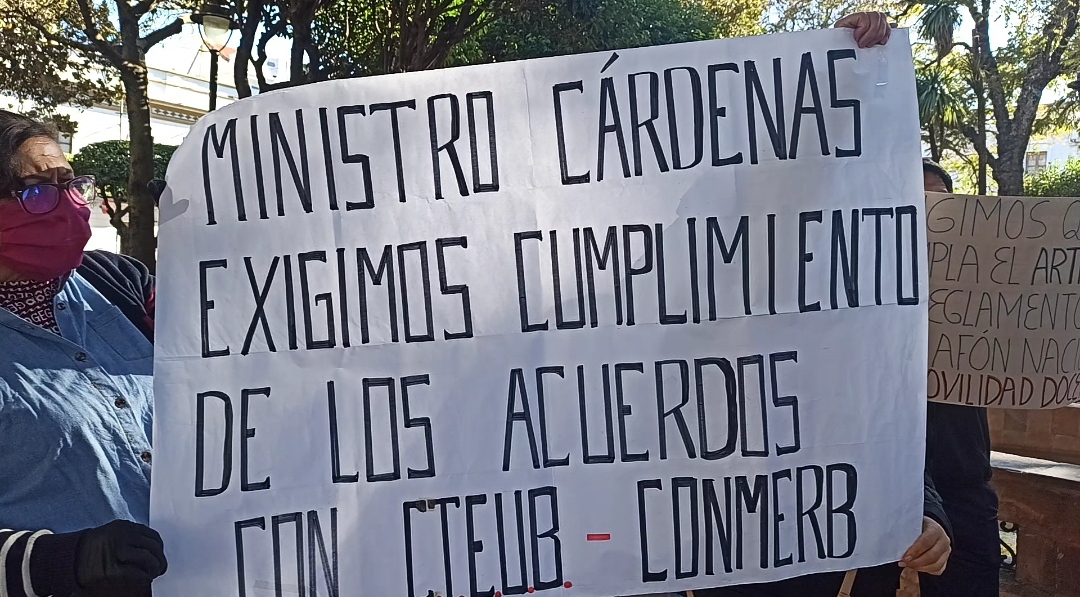 MINISTRO CÁRDENAS
EXIGIMOS CUMPLIMIENTO
DE LOS ACUERDOS
CON C.T.E.U.B. - CONMERB
GIMOS
PLA EL ARTI
EGLAMENTO
AFÓN NACI
OVILIDAD DOC